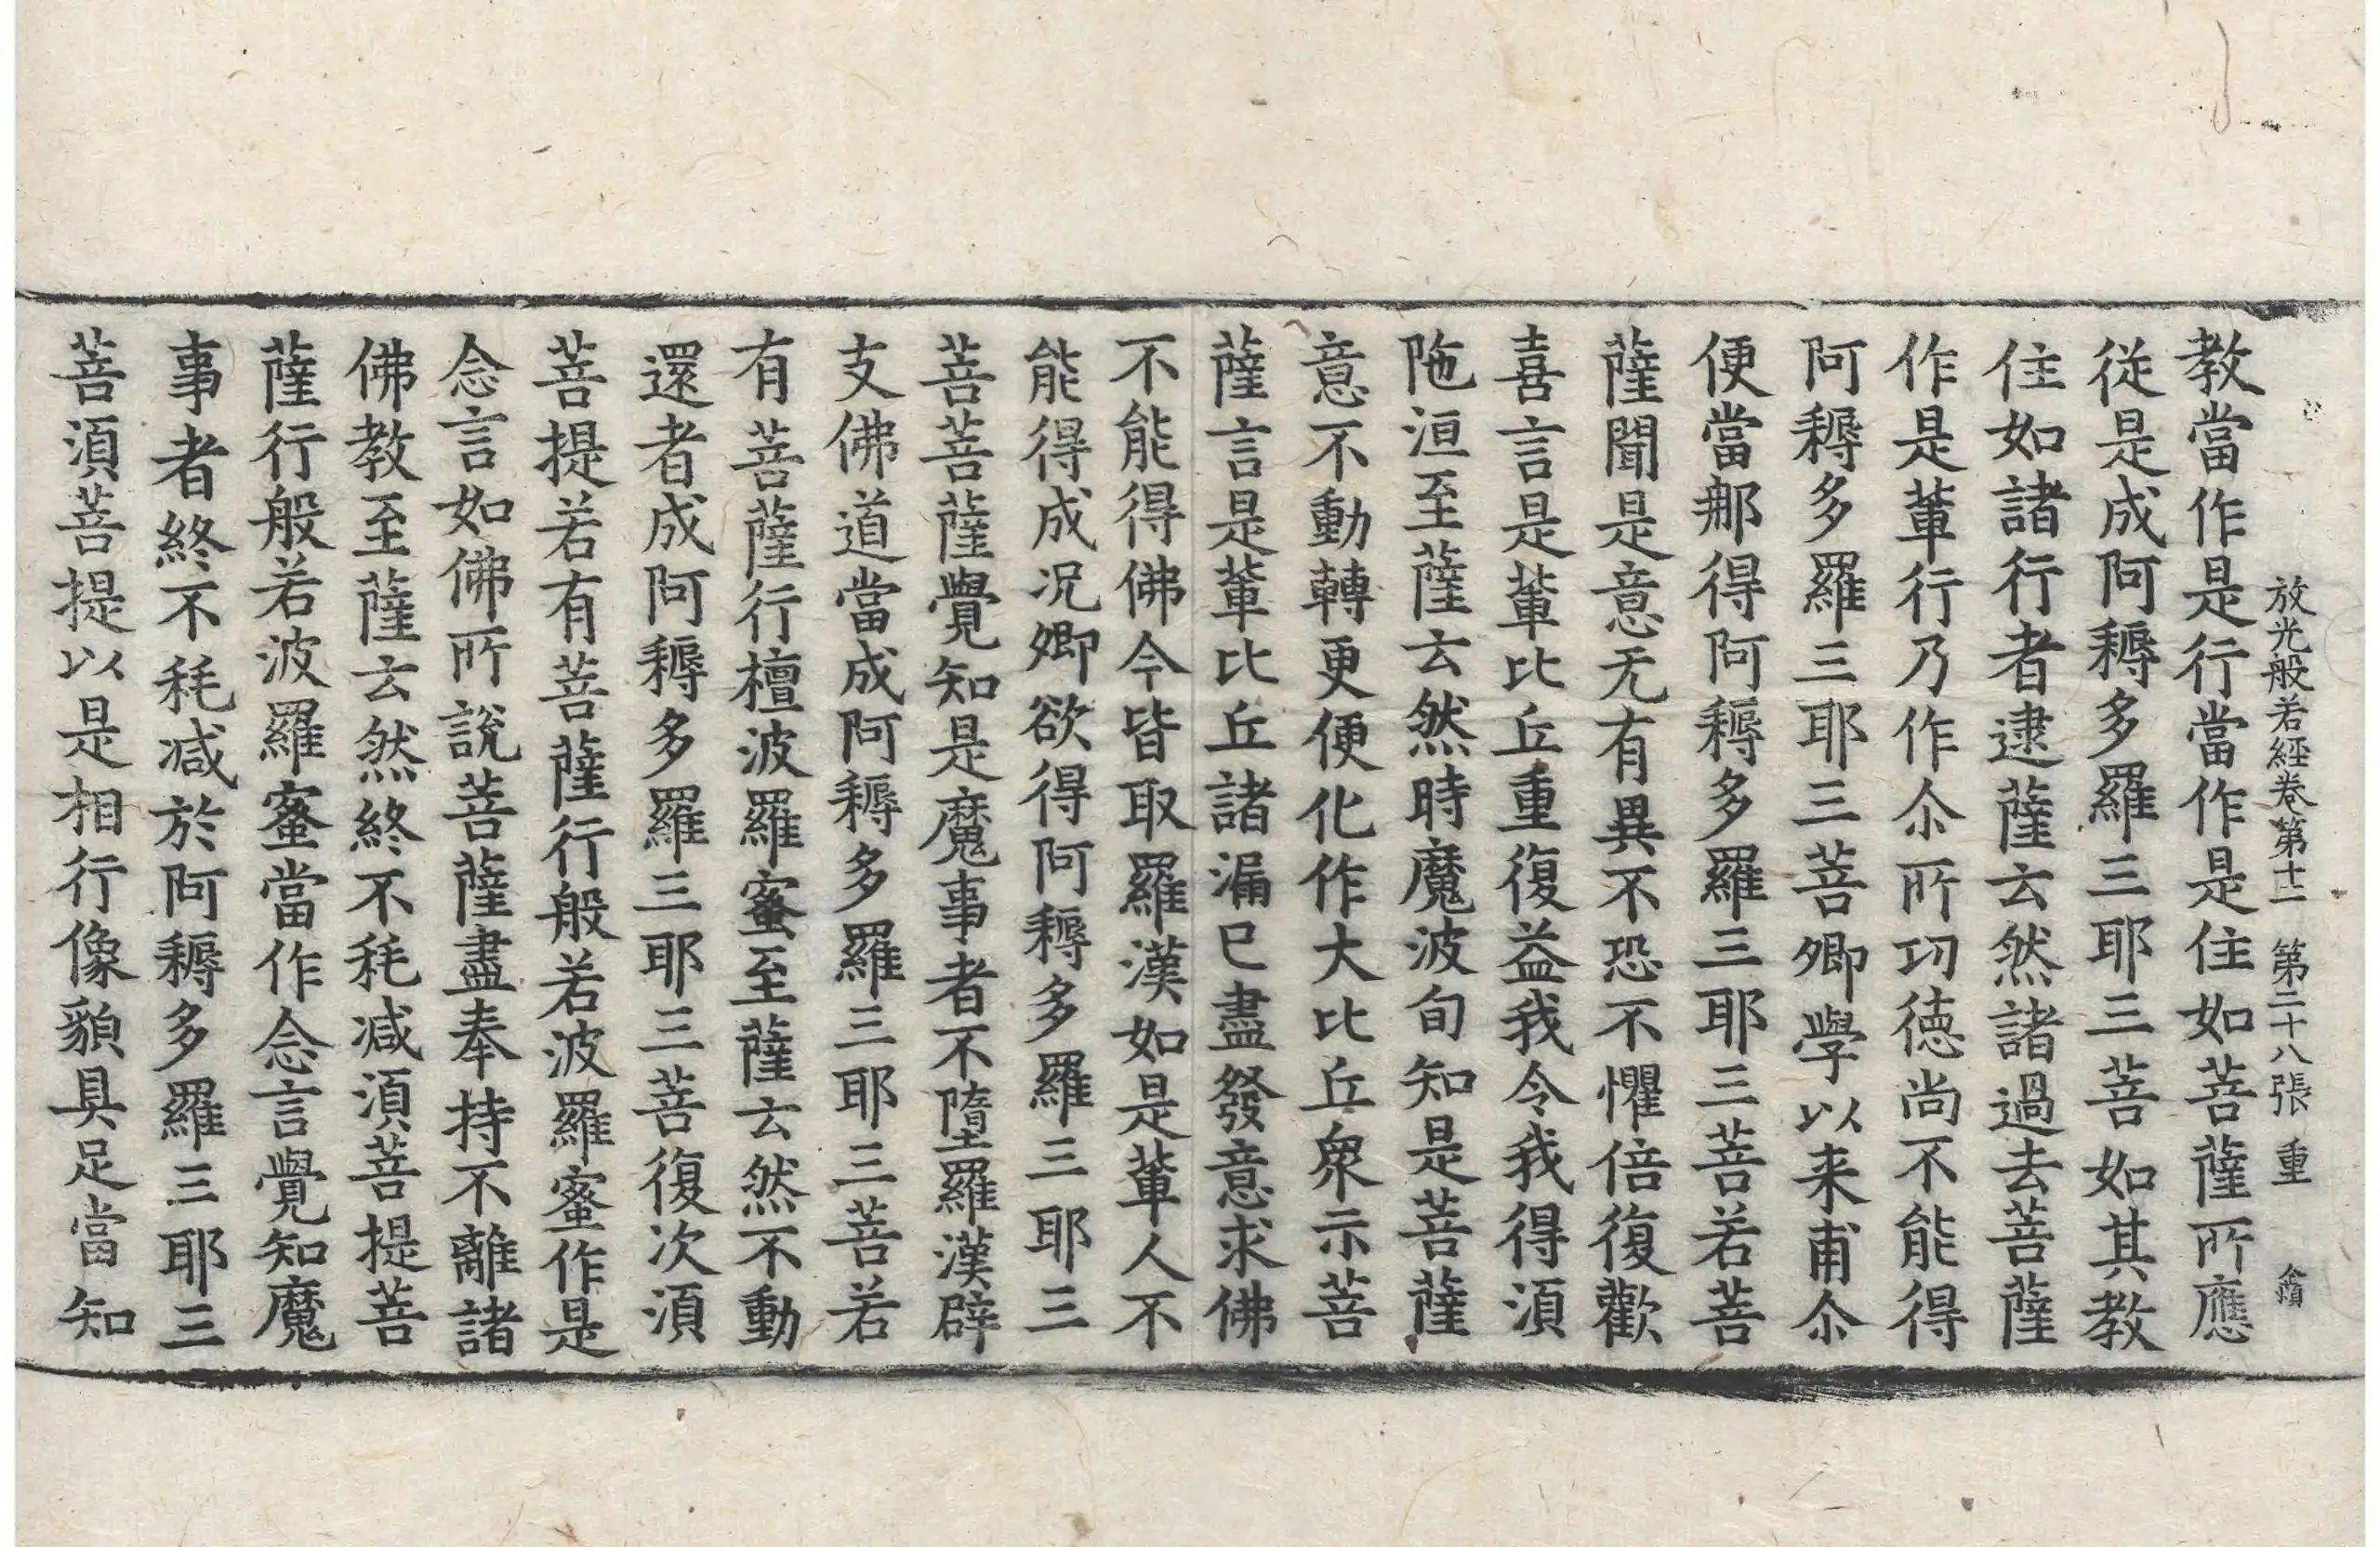 放光般若經卷第十二 第二十八張 重
教當作是行當作是住如菩薩所應
從是成阿耨多羅三耶三菩如其教
住如諸行者逮薩云然諸過去菩薩
作是軰行乃作尒所㓛德尚不能得
阿耨多羅三耶三菩卿學以来甫尒
便當𨙻得阿耨多羅三耶三菩若菩
薩聞是意无有異不恐不懼倍復歡
喜言是軰比丘重復益我令我得須
陁洹至薩云然時魔波旬知是菩薩
意不動轉更便化作大比丘衆示菩
薩言是軰比丘諸漏已盡發意求佛
不能得佛今皆取羅漢如是軰人不
能得成况卿欲得阿耨多羅三耶三
菩菩薩覺知是魔事者不墮羅漢辟
支佛道當成阿耨多羅三耶三菩若
有菩薩行檀波羅蜜至薩云然不動
還者成阿耨多羅三耶三菩復次須
菩提若有菩薩行般若波羅蜜作是
念言如佛所說菩薩盡奉持不離諸
佛教至薩云然終不耗減須菩提菩
薩行般若波羅蜜當作念言覺知魔
事者終不耗減於阿耨多羅三耶三
菩須菩提以是相行像貌具足當知